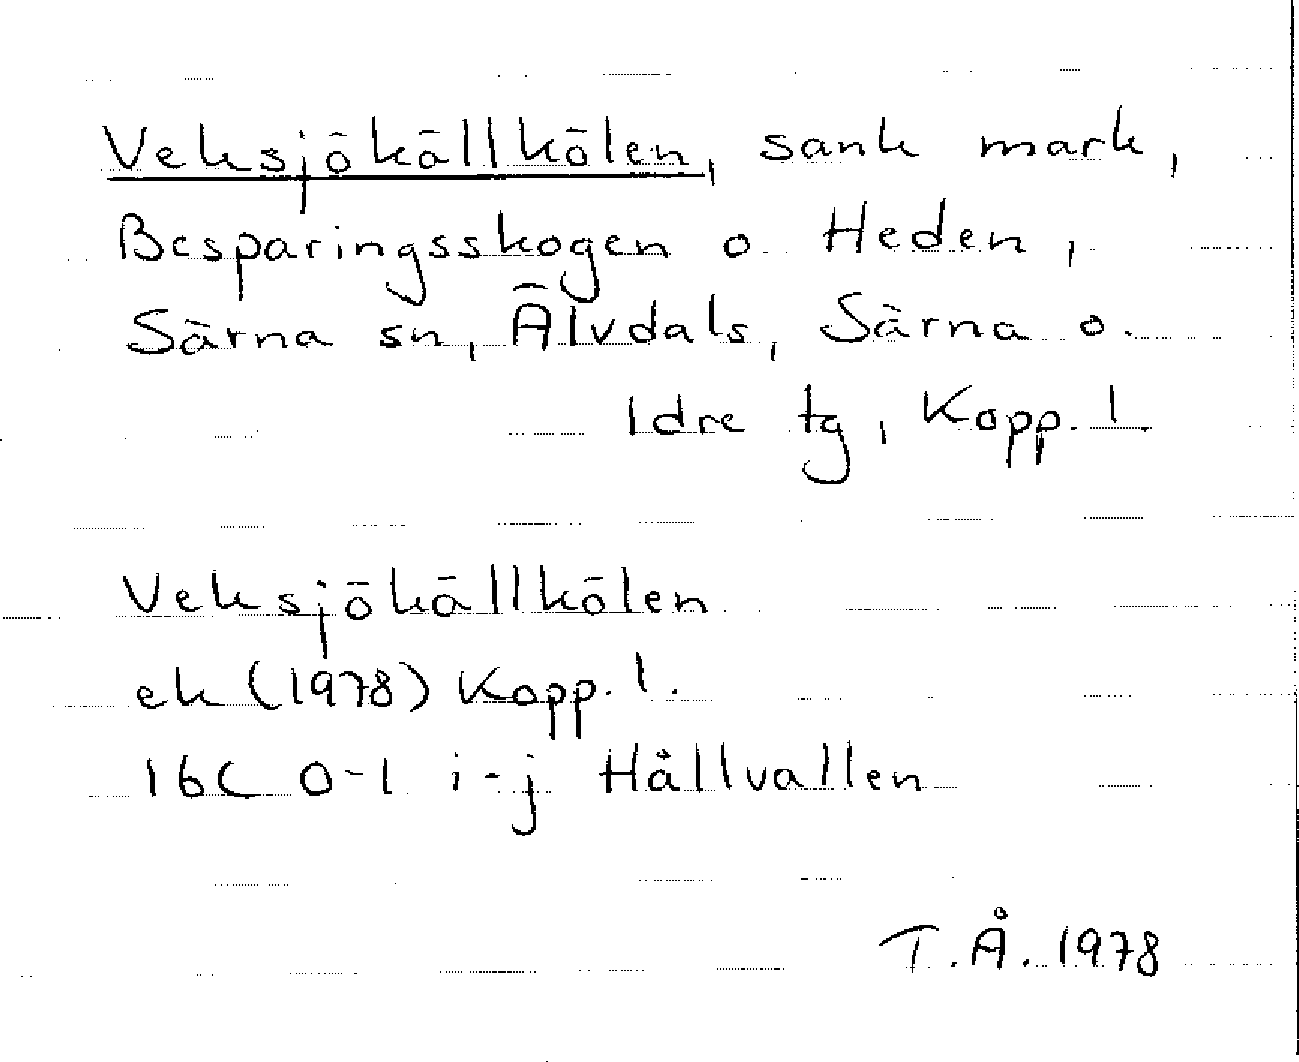 Veksjökällkölen, sank mark,
Besparingsskogen o. Heden,
Särna sn, Älvdals, Särna o.
Idre tg, Kopp. l.
Veksjökällkölen
ek (1978) Kopp. l.
16C 0-1 i-j Hållvallen
T.Å. 1978